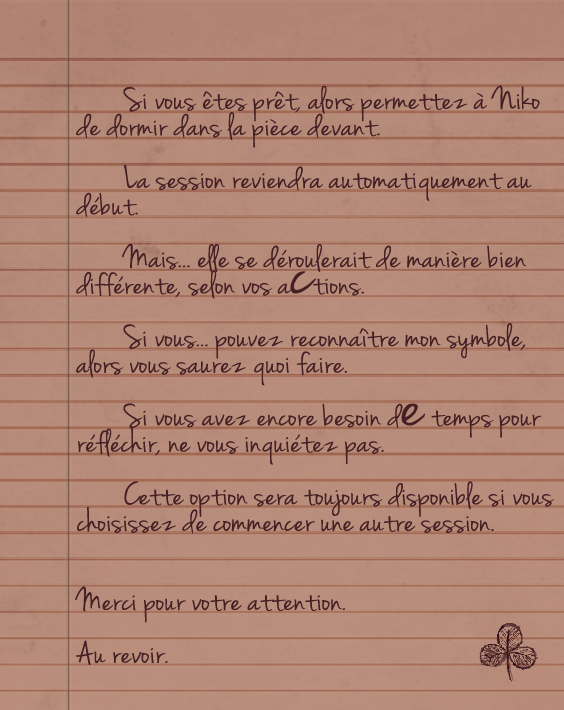 Si vous êtes prêt, alors permettez à Niko
de dormir dans la pièce devant.
La session reviendra automatiquement au
début.
Mais... elle se déroulerait de manière bien
différente, selon vos aCtions.
Si vous... pouvez reconnaître mon symbole,
alors vous saurez quoi faire.
Si vous avez encore besoin de temps pour
réfléchir, ne vous inquiétez pas.
Cette option sera toujours disponible si vous
choisissez de commencer une autre session.
Merci pour votre attention.
Au revoir.